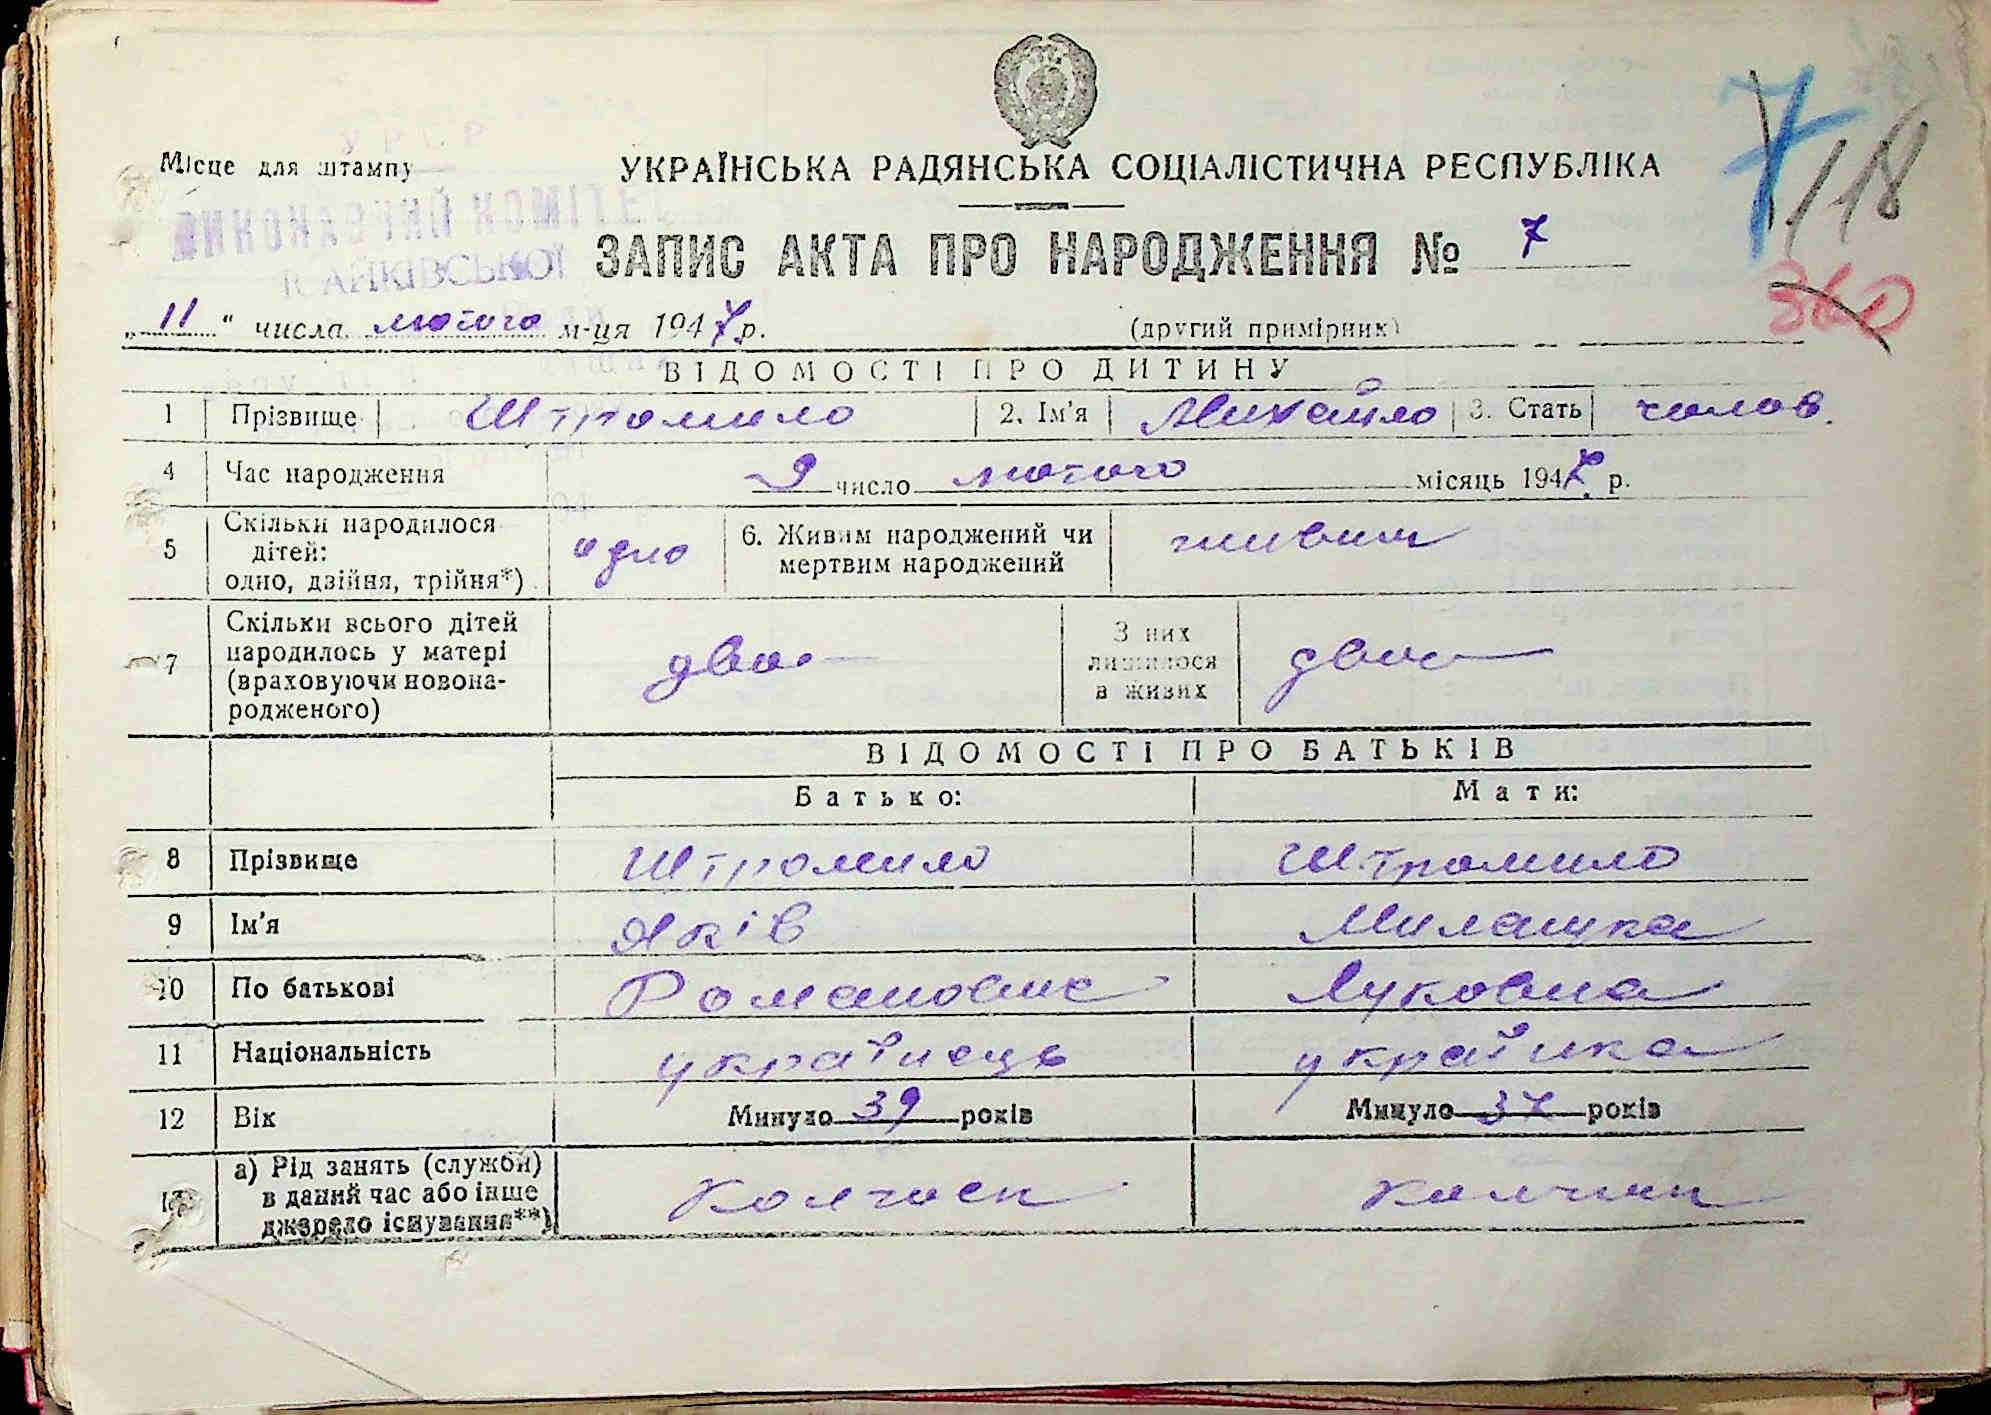 УРСР
Місце для штампу
УКРАЇНСЬКА РАДЯНСЬКА СОЦІАЛІСТИЧНА РЕСПУБЛІКА
7/118
ВИКОНАВЧИЙ КОМІТЕТ
ЗАПИС АКТА ПРО НАРОДЖЕННЯ № 7
360
„ 11 “ числа лютого м-ця 1947 р. (другий примірник)
ВІДОМОСТІ ПРО ДИТИНУ
1 Прізвище Штромило 2. Ім'я Михайло 3. Стать чолов.
4 Час народження 9 число лютого місяць 1947 р.
5 Скільки народилося дітей: одно, двійня, трійня*) одно 6. Живим народжений чи мертвим народжений живим
7 Скільки всього дітей народилось у матері (враховуючи новонародженого) двоє З них лишилося в живих двоє
ВІДОМОСТІ ПРО БАТЬКІВ
Батько: Мати:
8 Прізвище Штромило Штромило
9 Ім'я Яків Милашка
10 По батькові Романович Луковна
11 Національність українець українка
12 Вік Минуло 39 років Минуло 37 років
13 а) Рід занять (служби) в даний час або інше джерело існування**) Колгосп